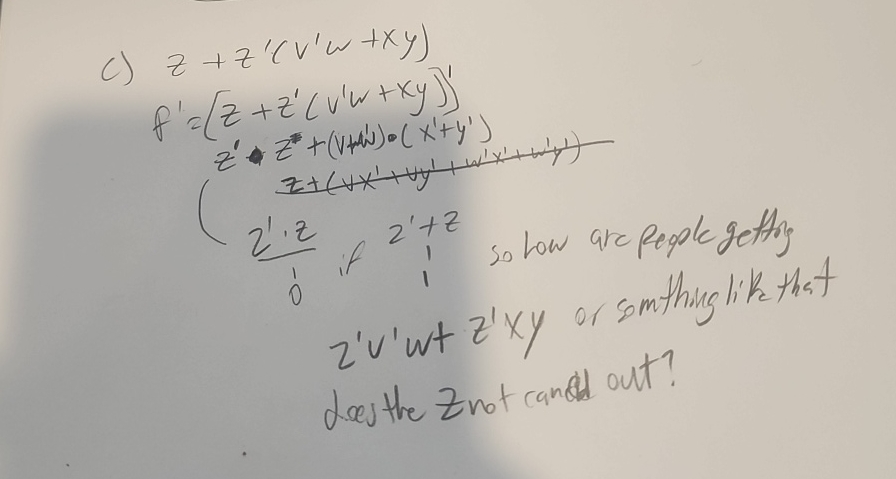 c) z + z'(v'w + xy)
f' = [z + z'(v'w + xy)]'
z' • z + (v+w') • (x'+y')
z + (vx' + vy' + w'x' + w'y')
z'·z if z'+z so how are people getting
0 1
z'v'w + z'xy or something like that
does the z not cancel out?